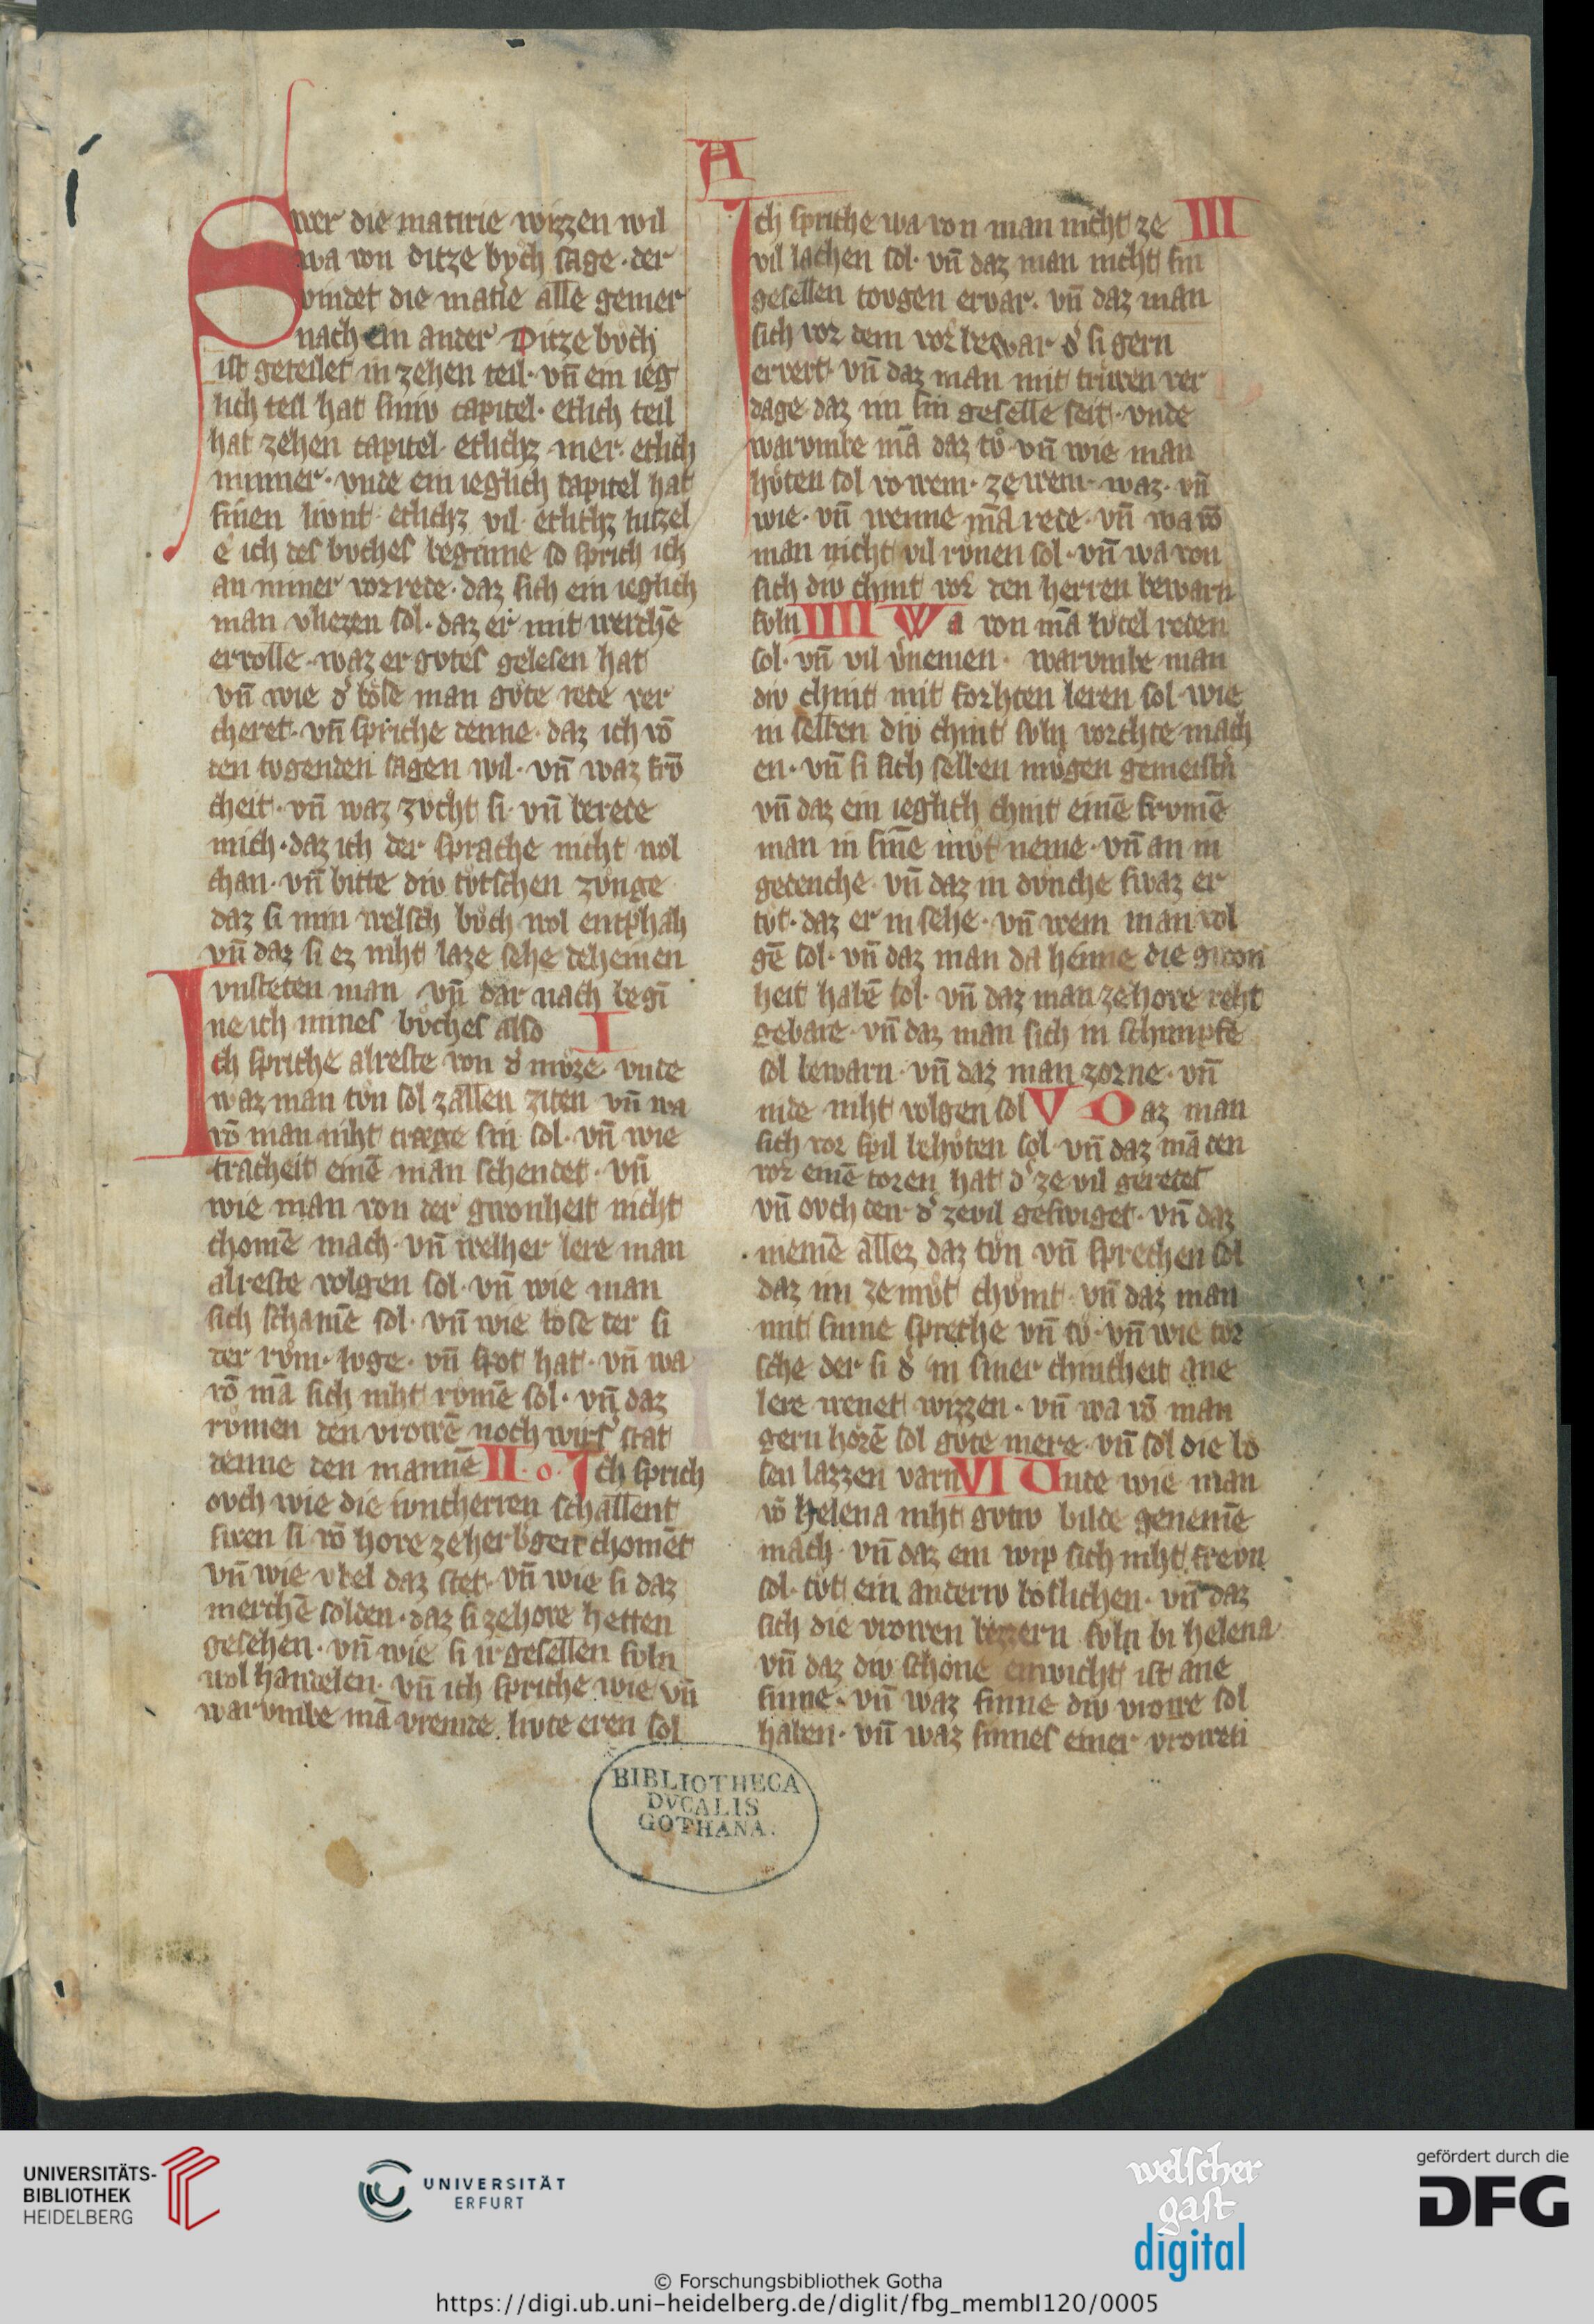 A
Swer die matirie wizzen wil
wa von ditze bůch sage · der
vindet die mat̾ie alle gemer
nach ein ander Ditze bůch
ist geteilet in zehen teil · vn̄ ein ieg
lich teil hat siniv capitel · etlich teil
hat zehen capitel · etlichz mer · etlich
minner · vnde ein ieglich capitel hat
sinen livnt · etlichz vil · etlichz lutzel
e ich des bvches beginne so sprich ich
an miner vorrede · daz sich ein ieglich
man vliezen sol · daz er mit werchē
ervolle · waz er gvtes gelesen hat
vn̄ wie d̾ bỏse man gůte rede ver
cheret · vn̄ spriche denne · daz ich vō
den tvgenden sagen wil · vn̄ waz frv̄
cheit · vn̄ waz zvcht si · vn̄ berede
mich · daz ich der sprache nicht wol
chan · vn̄ bitte div tvtschen zvnge
daz si min welsch bůch wol entphah
vn̄ daz si ez niht laze sehe deheinen
vnsteten man vn̄ dar nach begī
ne ich mines bůches also I
Ich spriche alreste von d̾ mvze vnde
waz man tůn sol zallen ziten vn̄ wa
vō man niht træge sin sol · vn̄ wie
tracheit einē man schendet · vn̄
wie man von der gwonheit nicht
chomē mach · vn̄ welher lere man
alreste volgen sol · vn̄ wie man
sich schamē sol · vn̄ wie bose der si
der rům · lvge · vn̄ spot hat · vn̄ wa
vō mā sich niht rvmē sol · vn̄ daz
rvmen den vrowē noch wirs stat
denne den mannē II · o · Ich sprich
ovch wie die ivncherren schallent
swen si vō hove ze herb̾gen chomēt
vn̄ wie vbel daz stet · vn̄ wie si daz
merchē solden · daz si ze hove hetten
gesehen · vn̄ wie si ir gesellen svln
wol handelen · vn̄ ich spriche wie vn̄
warvmbe mā vremde livte eren sol
Ich spriche wa von man nicht ze III
vil lachen sol · vn̄ daz man nicht sin
gesellen tovgen ervar · vn̄ daz man
sich vor dem vor bewar d̾ si gern
ervert · vn̄ daz man mit triwen ver
dage daz im sin geselle seit · vnde
warvmbe mā daz tů · vn̄ wie man
hůten sol vo wem · ze wem · waz · vn̄
wie · vn̄ wenne mā rede · vn̄ wa vō
man nicht vil rvnen sol · vn̄ wa von
sich div chint vor den herren bewarn
svln IIII Wa von mā lvtel reden
sol · vn̄ vil v̾nemen · warvmbe man
div chint mit forhten leren sol · wie
in selben div chint svln vorchte mach
en · vn̄ si sich selben mvgen gemeist̾n
vn̄ daz ein ieglich chint einē frvmē
man in sinē mvt neme · vn̄ an in
gedenche · vn̄ daz in dvnche swaz er
tvt · daz er in sehe · vn̄ wem man vol
gē sol · vn̄ daz man da heime die gwon
heit habē sol · vn̄ daz man ze hove reht
gebare · vn̄ daz man sich in schimpfe
sol bewarn · vn̄ daz man zorne · vn̄
nide niht volgen sol V Daz man
sich vor spil behůten sol · vn̄ daz mā den
vor einē toren hat d̾ ze vil geredet
vn̄ ovch den d̾ ze vil geswiget · vn̄ daz
niemē allez daz tůn vn̄ sprechen sol
daz im ze mvt chvmt · vn̄ daz man
mit sinne spreche vn̄ tů · vn̄ wie tor
sche der si d̾ in siner chintheit ane
lere wenet wizzen · vn̄ wa vō man
gern hỏrē sol gůte mere · vn̄ sol die bo
sen lazzen varn VI Unde wie man
vō Helena niht gvtiv bilde genemē
mach · vn̄ daz ein wip sich niht frevn
sol · tůt ein anderiv boslichen · vn̄ daz
sich die vrowen bezzern svln bi helena
vn̄ daz div schone einwicht ist ane
sinne · vn̄ waz sinne div vrowe sol
haben · vn̄ waz sinnes einer vrowen
BIBLIOTHECA
DVCALIS
GOTHANA.
UNIVERSITÄTS-
BIBLIOTHEK
HEIDELBERG
UNIVERSITÄT
ERFURT
welscher
gast
digital
gefördert durch die
DFG
© Forschungsbibliothek Gotha
https://digi.ub.uni-heidelberg.de/diglit/fbg_membI120/0005